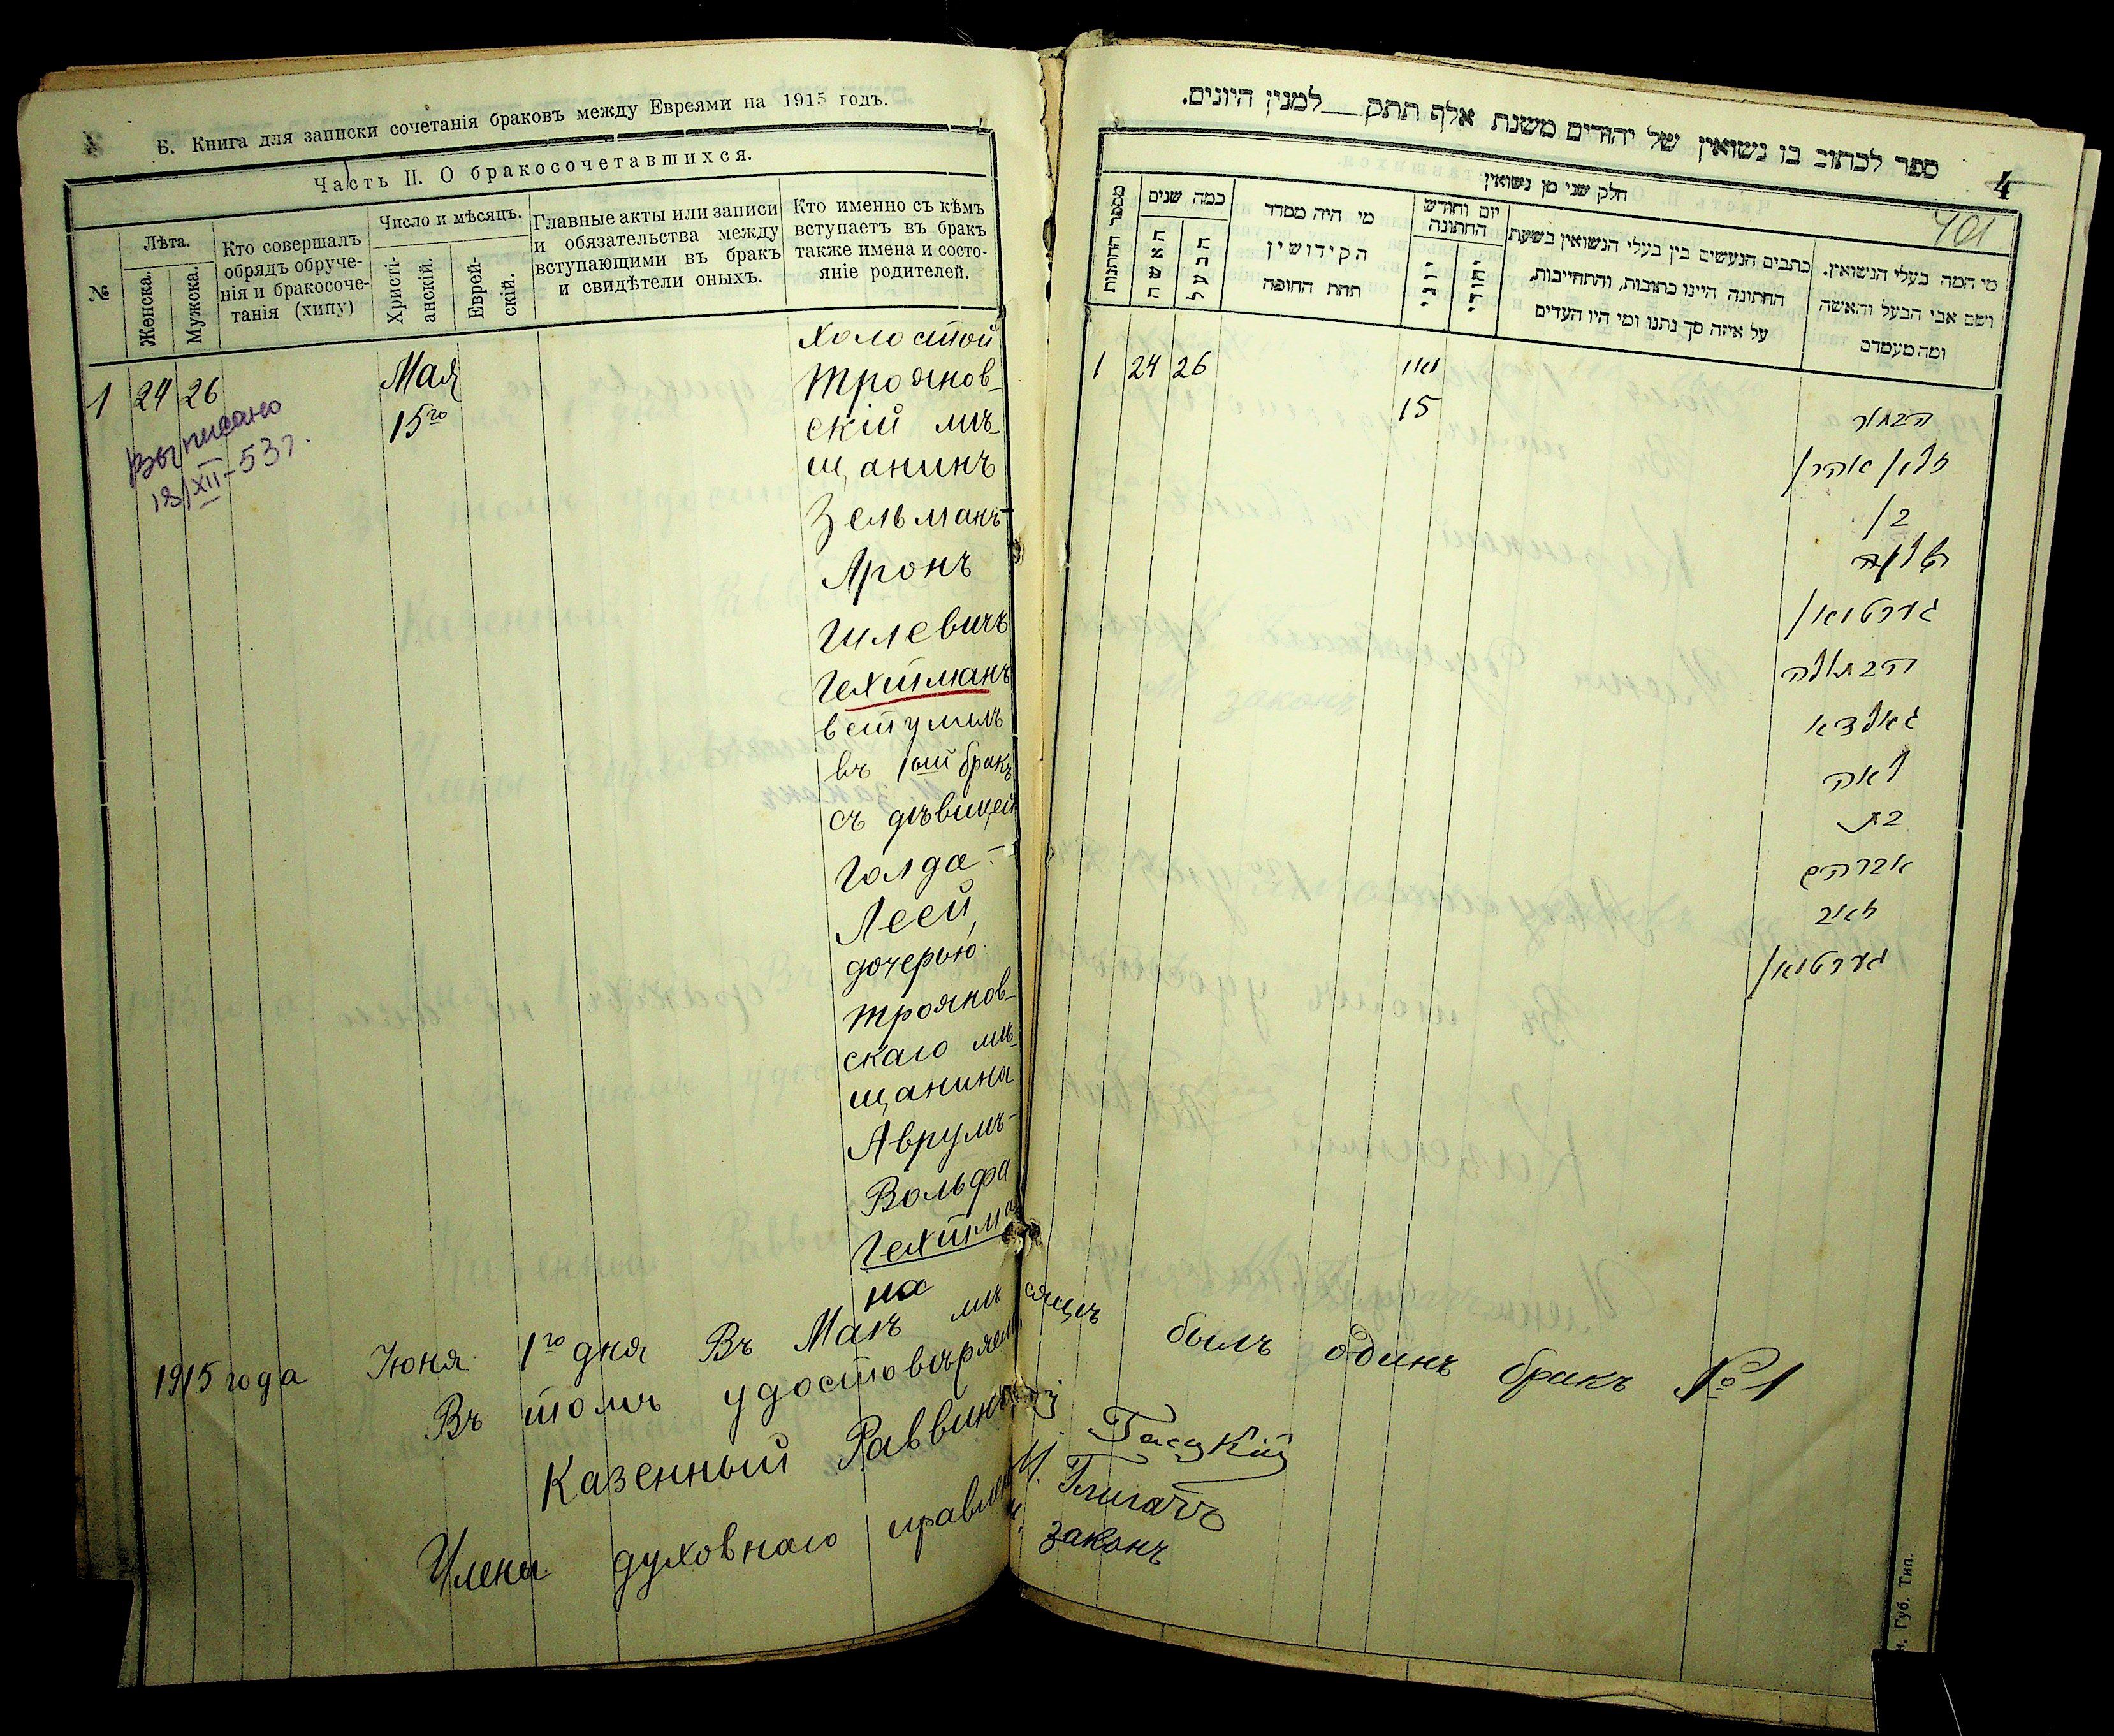 Б. Книга для записки сочетанія браковъ между Евреями на 1915 годъ.
Часть II. О бракосочетавшихся.
№
Лѣта.
Женска.
Мужска.
Кто совершалъ
обрядъ обруче-
нія и бракосоче-
танія (хипу)
Число и мѣсяцъ.
Христі-
анскій.
Еврей-
скій.
Главные акты или записи
и обязательства между
вступающими въ бракъ
и свидѣтели оныхъ.
Кто именно съ кѣмъ
вступаетъ въ бракъ
также имена и состо-
яніе родителей.
1 24 26
Мая
15го
Выписано
18/XII-53г.
Холостой
Троянов-
скій мѣ-
щанинъ
Зельманъ-
Аронъ
Гилевичъ
Гехтманъ
вступилъ
въ 1ый бракъ
съ дѣвицей
Голда-
Леей,
дочерью
Троянов-
скаго мѣ-
щанина
Аврумъ-
Вольфа
Гехтма
на
1915 года Іюня 1го дня Въ Маѣ мѣсяцѣ былъ одинъ бракъ №1
Въ томъ удостовѣряемъ
Казенный Раввинъ
Члены духовнаго правлен
законъ
ספר לכתוב בו נשואין של יהודים משנת אלף תתק__למנין היונים.
4
401
חלק שני מן נשואין
מספר החתנות
כמה שנים
האשה
הבעל
מי היה מסדר
הקידושין
תחת החופה
יום וחודש
החתונה
יוני
יהודי
כתבים הנעשים בין בעלי הנשואין בשעת
החתונה היינו כתובות, והתחייבות,
על איזה סך נתנו ומי היו העדים
מי המה בעלי הנשואין.
ושם אבי הבעל והאשה
ומה מעמדם
1 24 26
מאי
15
הבחור
זלמן אהרן
בן
געכטמאן
הבתולה
גאלדא
לאה
בת
אברהם
זאב
געכטמאן
Губ. Тип.